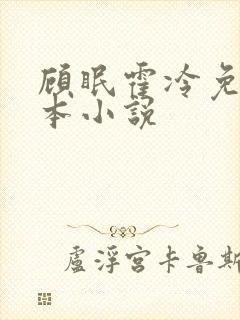 顾眠霍冷免
本小说
卢浮宫卡鲁斯